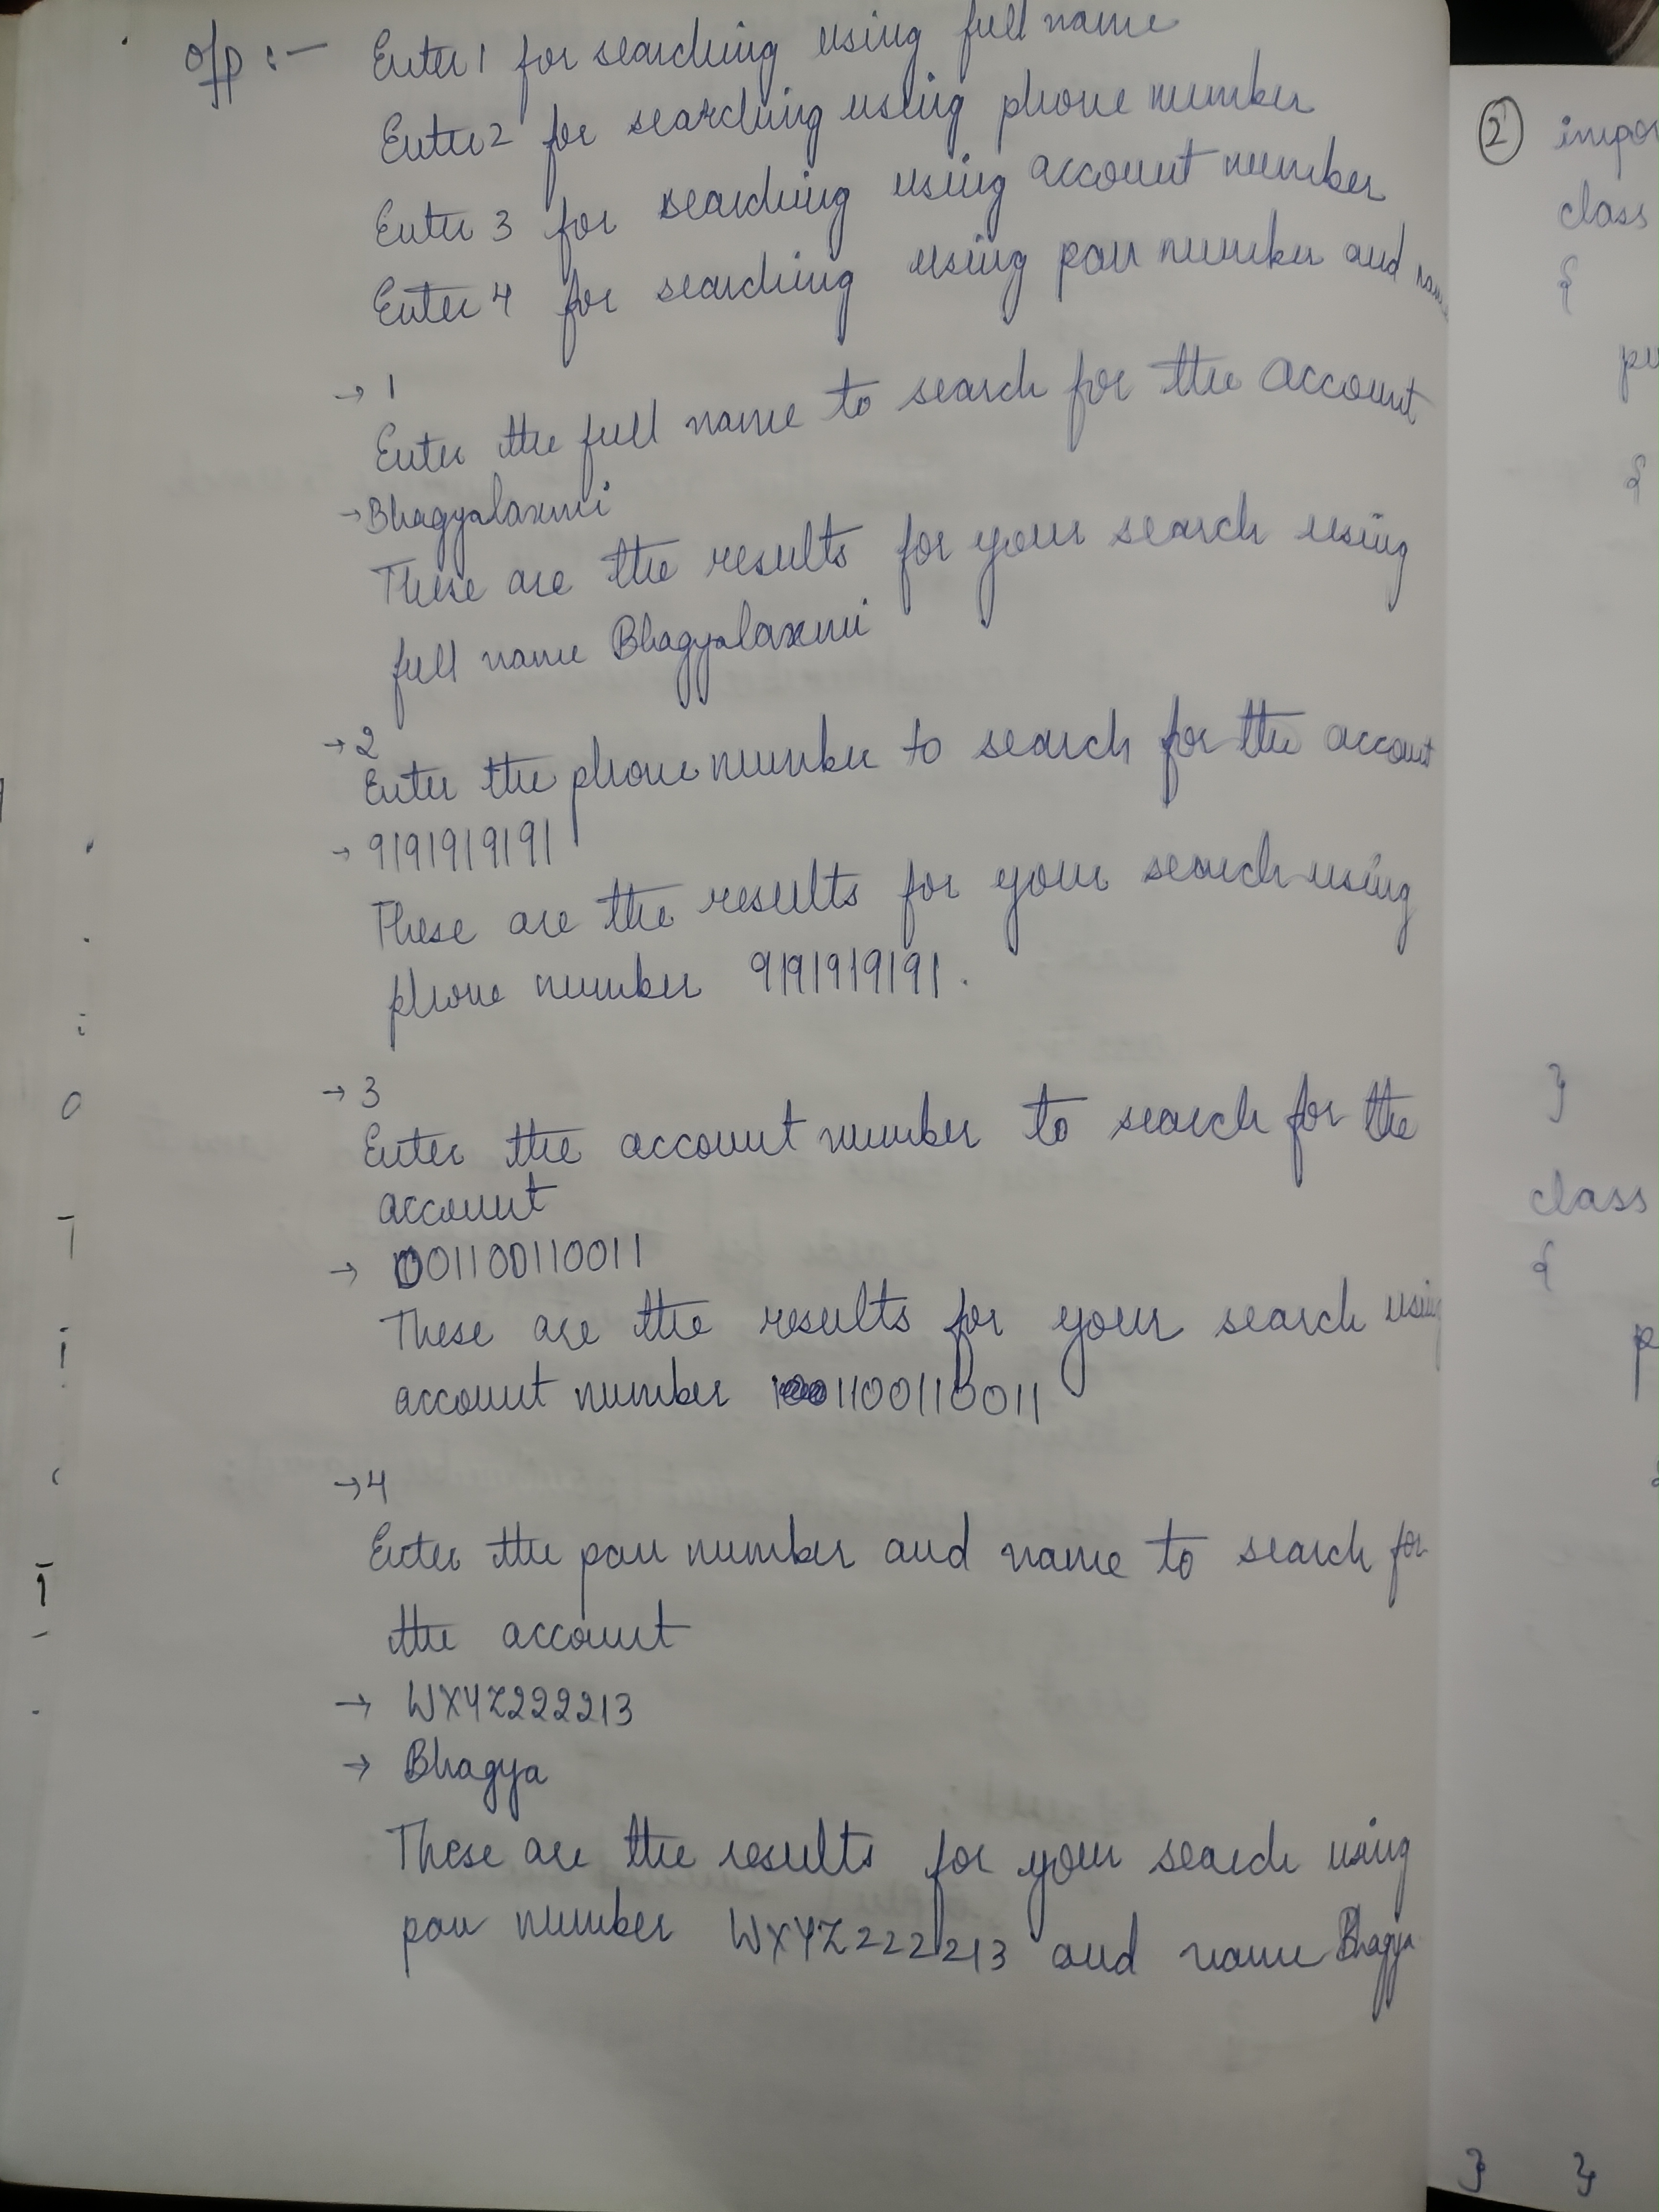 o/p :- Enter 1 for searching using full name
Enter 2 for searching using phone number
Enter 3 for searching using account number
Enter 4 for searching using pan number and name
→ 1
Enter the full name to search for the account
→ Bhagyalaxmi
These are the results for your search using
full name Bhagyalaxmi
→ 2
Enter the phone number to search for the account
→ 9191919191
These are the results for your search using
phone number 9191919191.
→ 3
Enter the account number to search for the
account
→ 001100110011
These are the results for your search using
account number
→ 4
Enter the pan number and name to search for
the account
→ WXYZ222213
→ Bhagya
These are the results for your search using
pan number WXYZ222213 and name Bhagya
② impor
class
{
pu
{
}
class
{
p
}
}